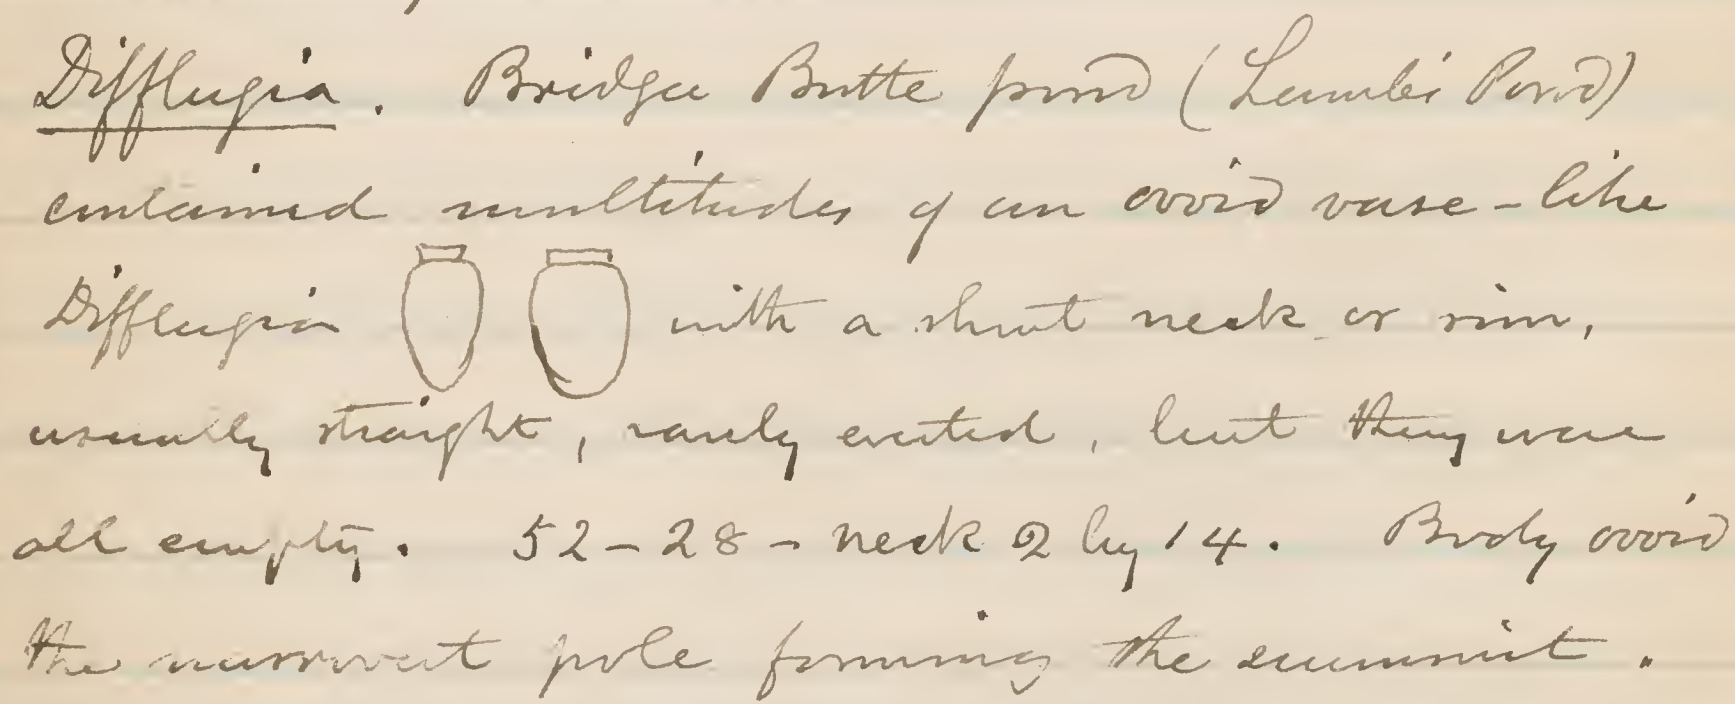 Difflugia. Bridger Butte pond (Lambs Pond)
contained multitudes of an ovoid vase-like
Difflugia with a short neck or rim,
usually straight, rarely everted, but they were
all empty. 52-28- neck 2 by 14. Body ovoid
the narrowest pole forming the summit.